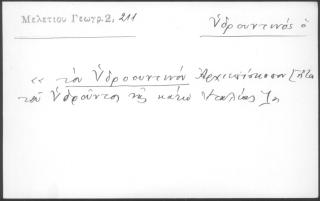 Μελετίου Γεωγρ. 2, 211
Ὑδρουντινός ὁ
« τὸν Ὑδρουντινόν Ἀρχιεπίσκοπον
τοῦ Ὑδροῦντος τῆς κάτω Ἰταλίας